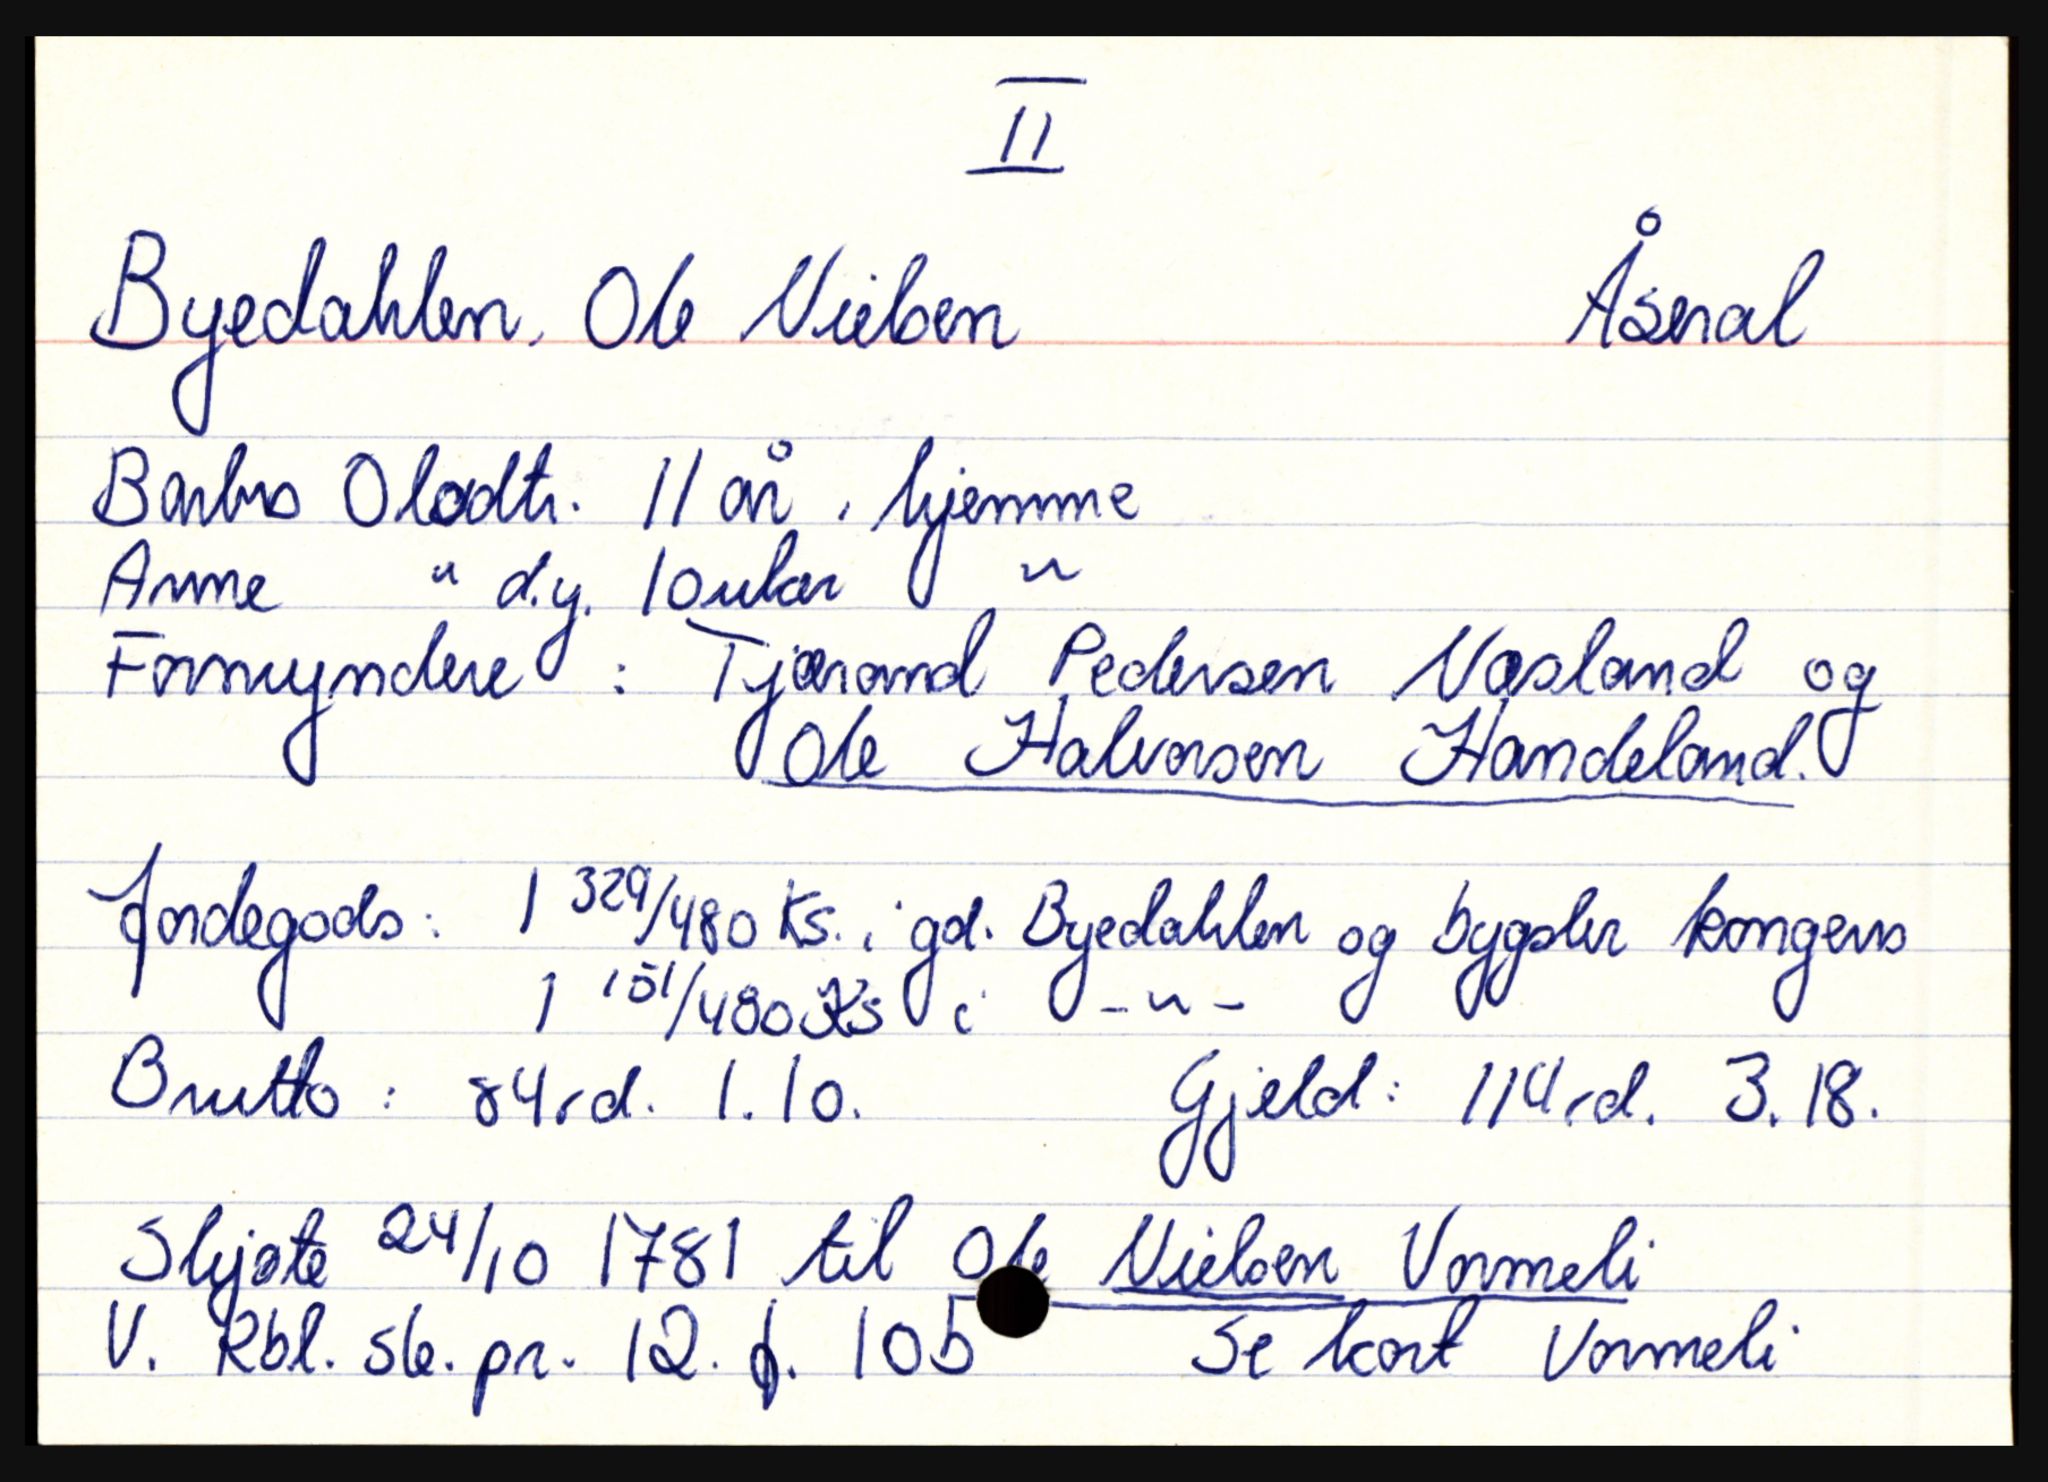 II
Byedahlen, Ole Nielsen Åseral
Barbro Olsdtr. 11 år, hjemme
Anne " d.y. 10 uker "
Formyndere : Tjærand Pedersen Næsland og
Ole Halvorsen Handeland.
Jordegods: 1 329/480 Ks. i gd. Byedahlen og bygsler kongens
1 151/480 Ks i - " -
Brutto : 84 rd. 1.10. Gjeld: 114 rd. 3.18.
Skjøte 24/10 1781 til Ole Nielsen Vormeli
V. Rbl. sk. pr. 12. f. 105 Se kort Vormeli